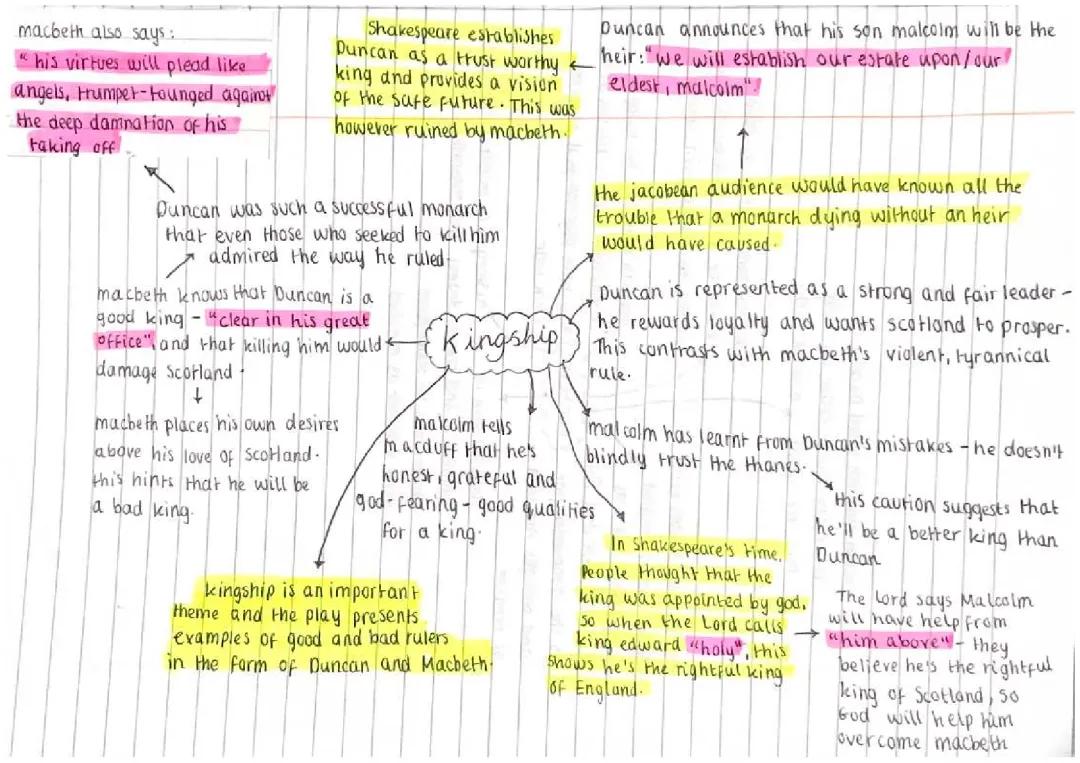 macbeth also says:
"his virtues will plead like
angels, trumpet-tounged against
the deep damnation of his
taking off
Shakespeare establishes
Duncan as a trust worthy
king and provides a vision
of the safe future. This was
however ruined by macbeth.
Duncan announces that his son malcolm will be the
heir: "we will establish our estate upon/our
eldest, malcolm".
the jacobean audience would have known all the
trouble that a monarch dying without an heir
would have caused.
Duncan was such a successful monarch
that even those who seeked to kill him
admired the way he ruled.
macbeth knows that Duncan is a
good king - "clear in his great
office", and that killing him would
damage Scotland.
macbeth places his own desires
above his love of Scotland.
this hints that he will be
a bad king.
Kingship
Duncan is represented as a strong and fair leader -
he rewards loyalty and wants scotland to prosper.
This contrasts with macbeth's violent, tyrannical
rule.
malcolm has learnt from Duncan's mistakes - he doesn't
blindly trust the thanes.
this caution suggests that
he'll be a better king than
Duncan
malcolm tells
macduff that he's
honest, grateful and
god-fearing - good qualities
for a king.
kingship is an important
theme and the play presents
examples of good and bad rulers
in the form of Duncan and Macbeth.
In Shakespeare's time,
People thought that the
king was appointed by god,
so when the Lord calls
king edward "holy", this
shows he's the rightful king
of England.
The Lord says Malcolm
will have help from
"him above" - they
believe he's the rightful
king of Scotland, so
God will help him
overcome macbeth